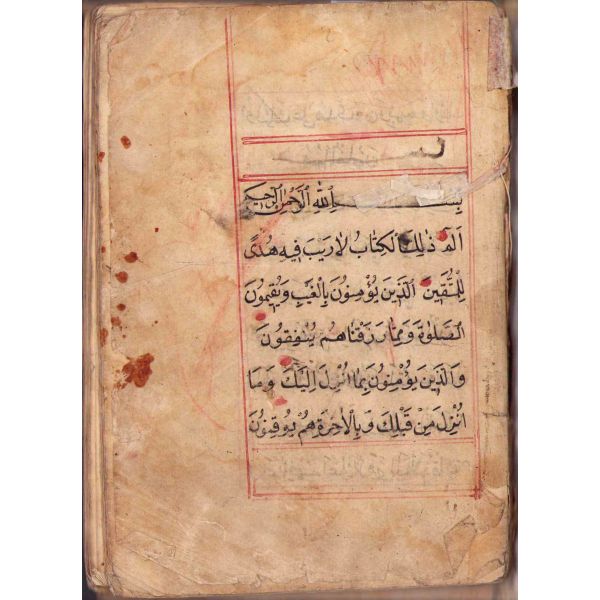 بِسْمِ اللهِ الرَّحْمٰنِ الرَّحِيمِ
الٓمٓ ذٰلِكَ الْكِتَابُ لَا رَيْبَ فِيهِ هُدًى
لِلْمُتَّقِينَ الَّذِينَ يُؤْمِنُونَ بِالْغَيْبِ وَيُقِيمُونَ
الصَّلٰوةَ وَمِمَّا رَزَقْنَاهُمْ يُنْفِقُونَ
وَالَّذِينَ يُؤْمِنُونَ بِمَا اُنْزِلَ اِلَيْكَ وَمَا
اُنْزِلَ مِنْ قَبْلِكَ وَبِالْاٰخِرَةِ هُمْ يُوقِنُونَ